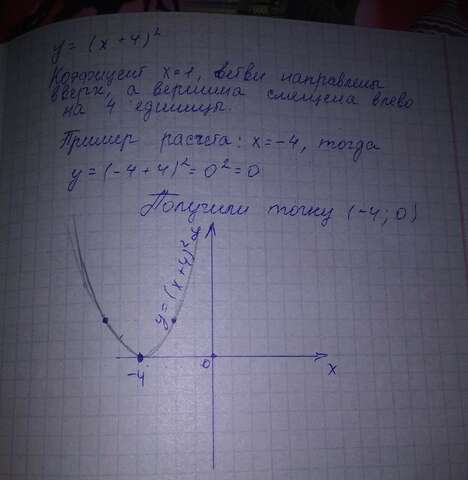 y = (x + 4)²
Коэффицент x=1, ветви направлены
вверх, а вершина смещена влево
на 4 единицы.
Пример расчета: x = -4, тогда
y = (-4 + 4)² = 0² = 0
Получили точку (-4; 0)
y
y = (x + 4)²
-4
0
x